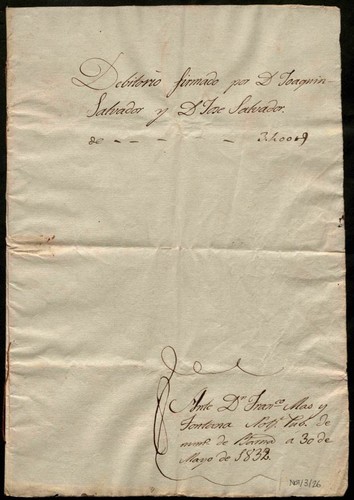 Debitorio firmado por Dn Joaquin
Salvador y Dn Jose Salvador
de - - - - - -
Ante Dn Franco Mas y
Fontana Noto Pub. de
numo de Barna a 30 de
Mayo de 1832.
NOT/3/26